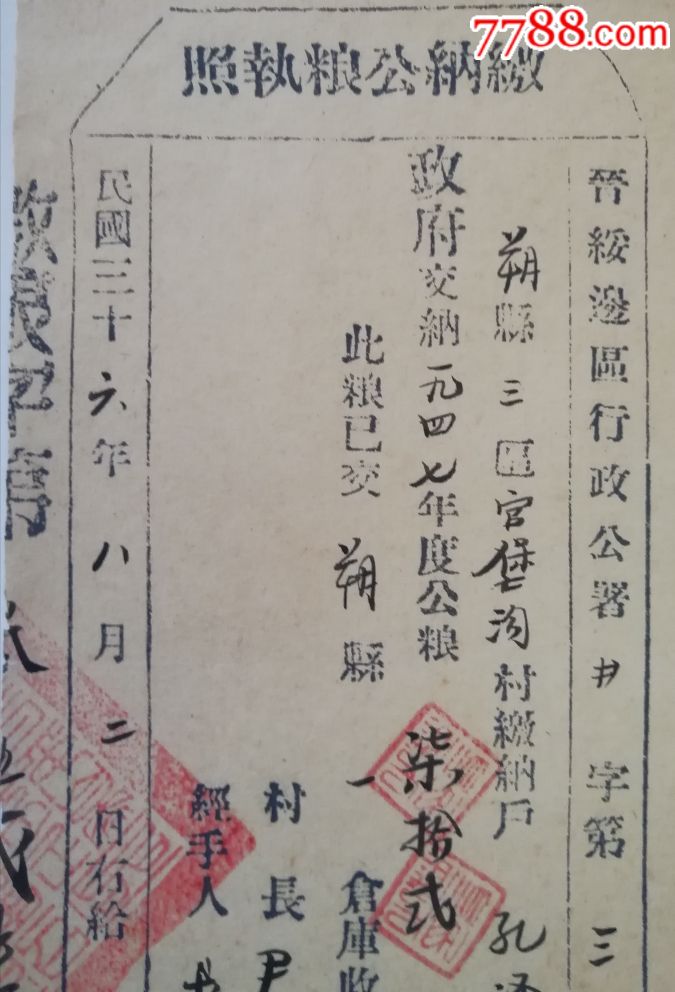 7788.com
照執粮公納繳
晉綏邊區行政公署 字第三
朔縣三區官堡沟村繳納戶孔
政府交納一九四七年度公粮柒拾弍
此粮已交朔縣一倉庫收
村長尹
經手人
民國三十六年八月二日右給